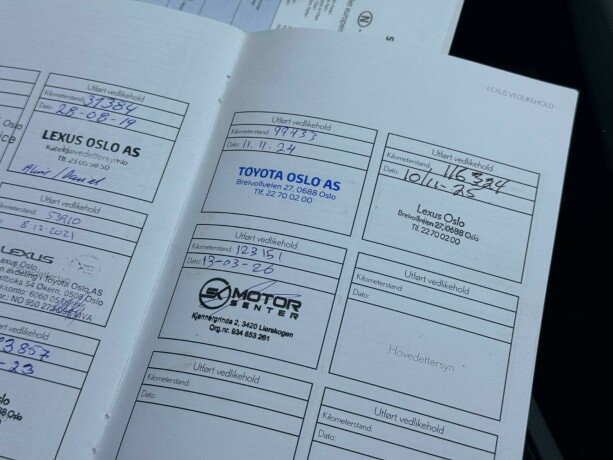 Utført vedlikehold
Kilometerstand: 37384
Dato: 28-08-19
LEXUS OSLO AS
Tlf. 23 05 58 50
Utført vedlikehold
Kilometerstand: 53910
8-12-2021
LEXUS
Lexus Oslo
avdeling i Toyota Oslo AS
Økern, 0508 Oslo
Utført vedlikehold
3857
-23
LEXUS VEDLIKEHOLD
Utført vedlikehold
Kilometerstand: 99733
Dato: 11.11.24
TOYOTA OSLO AS
Breivollveien 27, 0688 Oslo
Tlf. 22 70 02 00
Utført vedlikehold
Kilometerstand: 116324
Dato: 10/11-25
Lexus Oslo
Breivollveien 27, 0688 Oslo
Tlf. 22 70 02 00
Utført vedlikehold
Kilometerstand: 123151
Dato: 13-03-26
MOTOR
SENTER
Kjennergrinda 2, 3420 Lierskogen
Org.nr. 934 653 261
Utført vedlikehold
Kilometerstand:
Dato:
Hovedettersyn
Utført vedlikehold
Kilometerstand:
Dato:
Utført vedlikehold
Kilometerstand:
Dato: